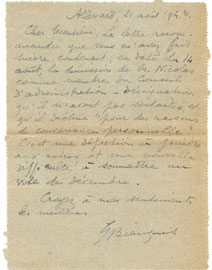 Allevard, 21 août 1942.
Cher Monsieur, la lettre recom-
mandée que vous m'avez fait
suivre contenait, en date du 14
août, la démission de M. Nicolas
comme membre du Conseil
d'administration - désignation
qu'il n'avait pas souhaitée et
qu'il décline "pour des raisons
de convenance personnelle".
C'est une défection à joindre
aux autres et une nouvelle
difficulté à soumettre au
vote de décembre.
Croyez à mes sentiments
les meilleurs
Bianquis